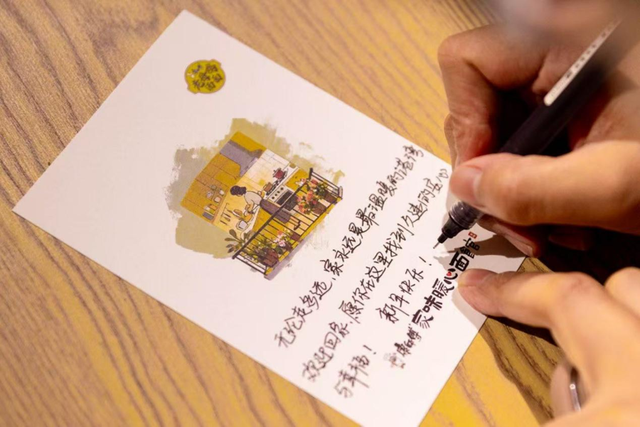 无论走多远,家永远是最温暖的港湾
欢迎回家,愿你在这里找到久违的
与幸福! 新年快乐!
康师傅 家味暖心面馆